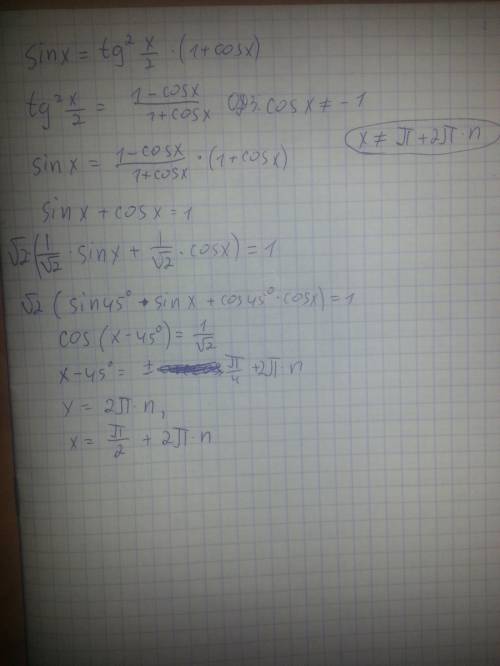 sin x = tg² x/2 · (1+cosx)
tg² x/2 = (1-cosx)/(1+cosx) ОДЗ. cos x ≠ -1
x ≠ π+2π·n
sin x = (1-cosx)/(1+cosx) · (1+cosx)
sin x + cos x = 1
√2(1/√2 · sin x + 1/√2 · cosx) = 1
√2 ( sin45° · sin x + cos45° · cosx) = 1
cos (x-45°) = 1/√2
x-45° = ± π/4 +2π·n
x = 2π·n,
x = π/2 + 2π·n